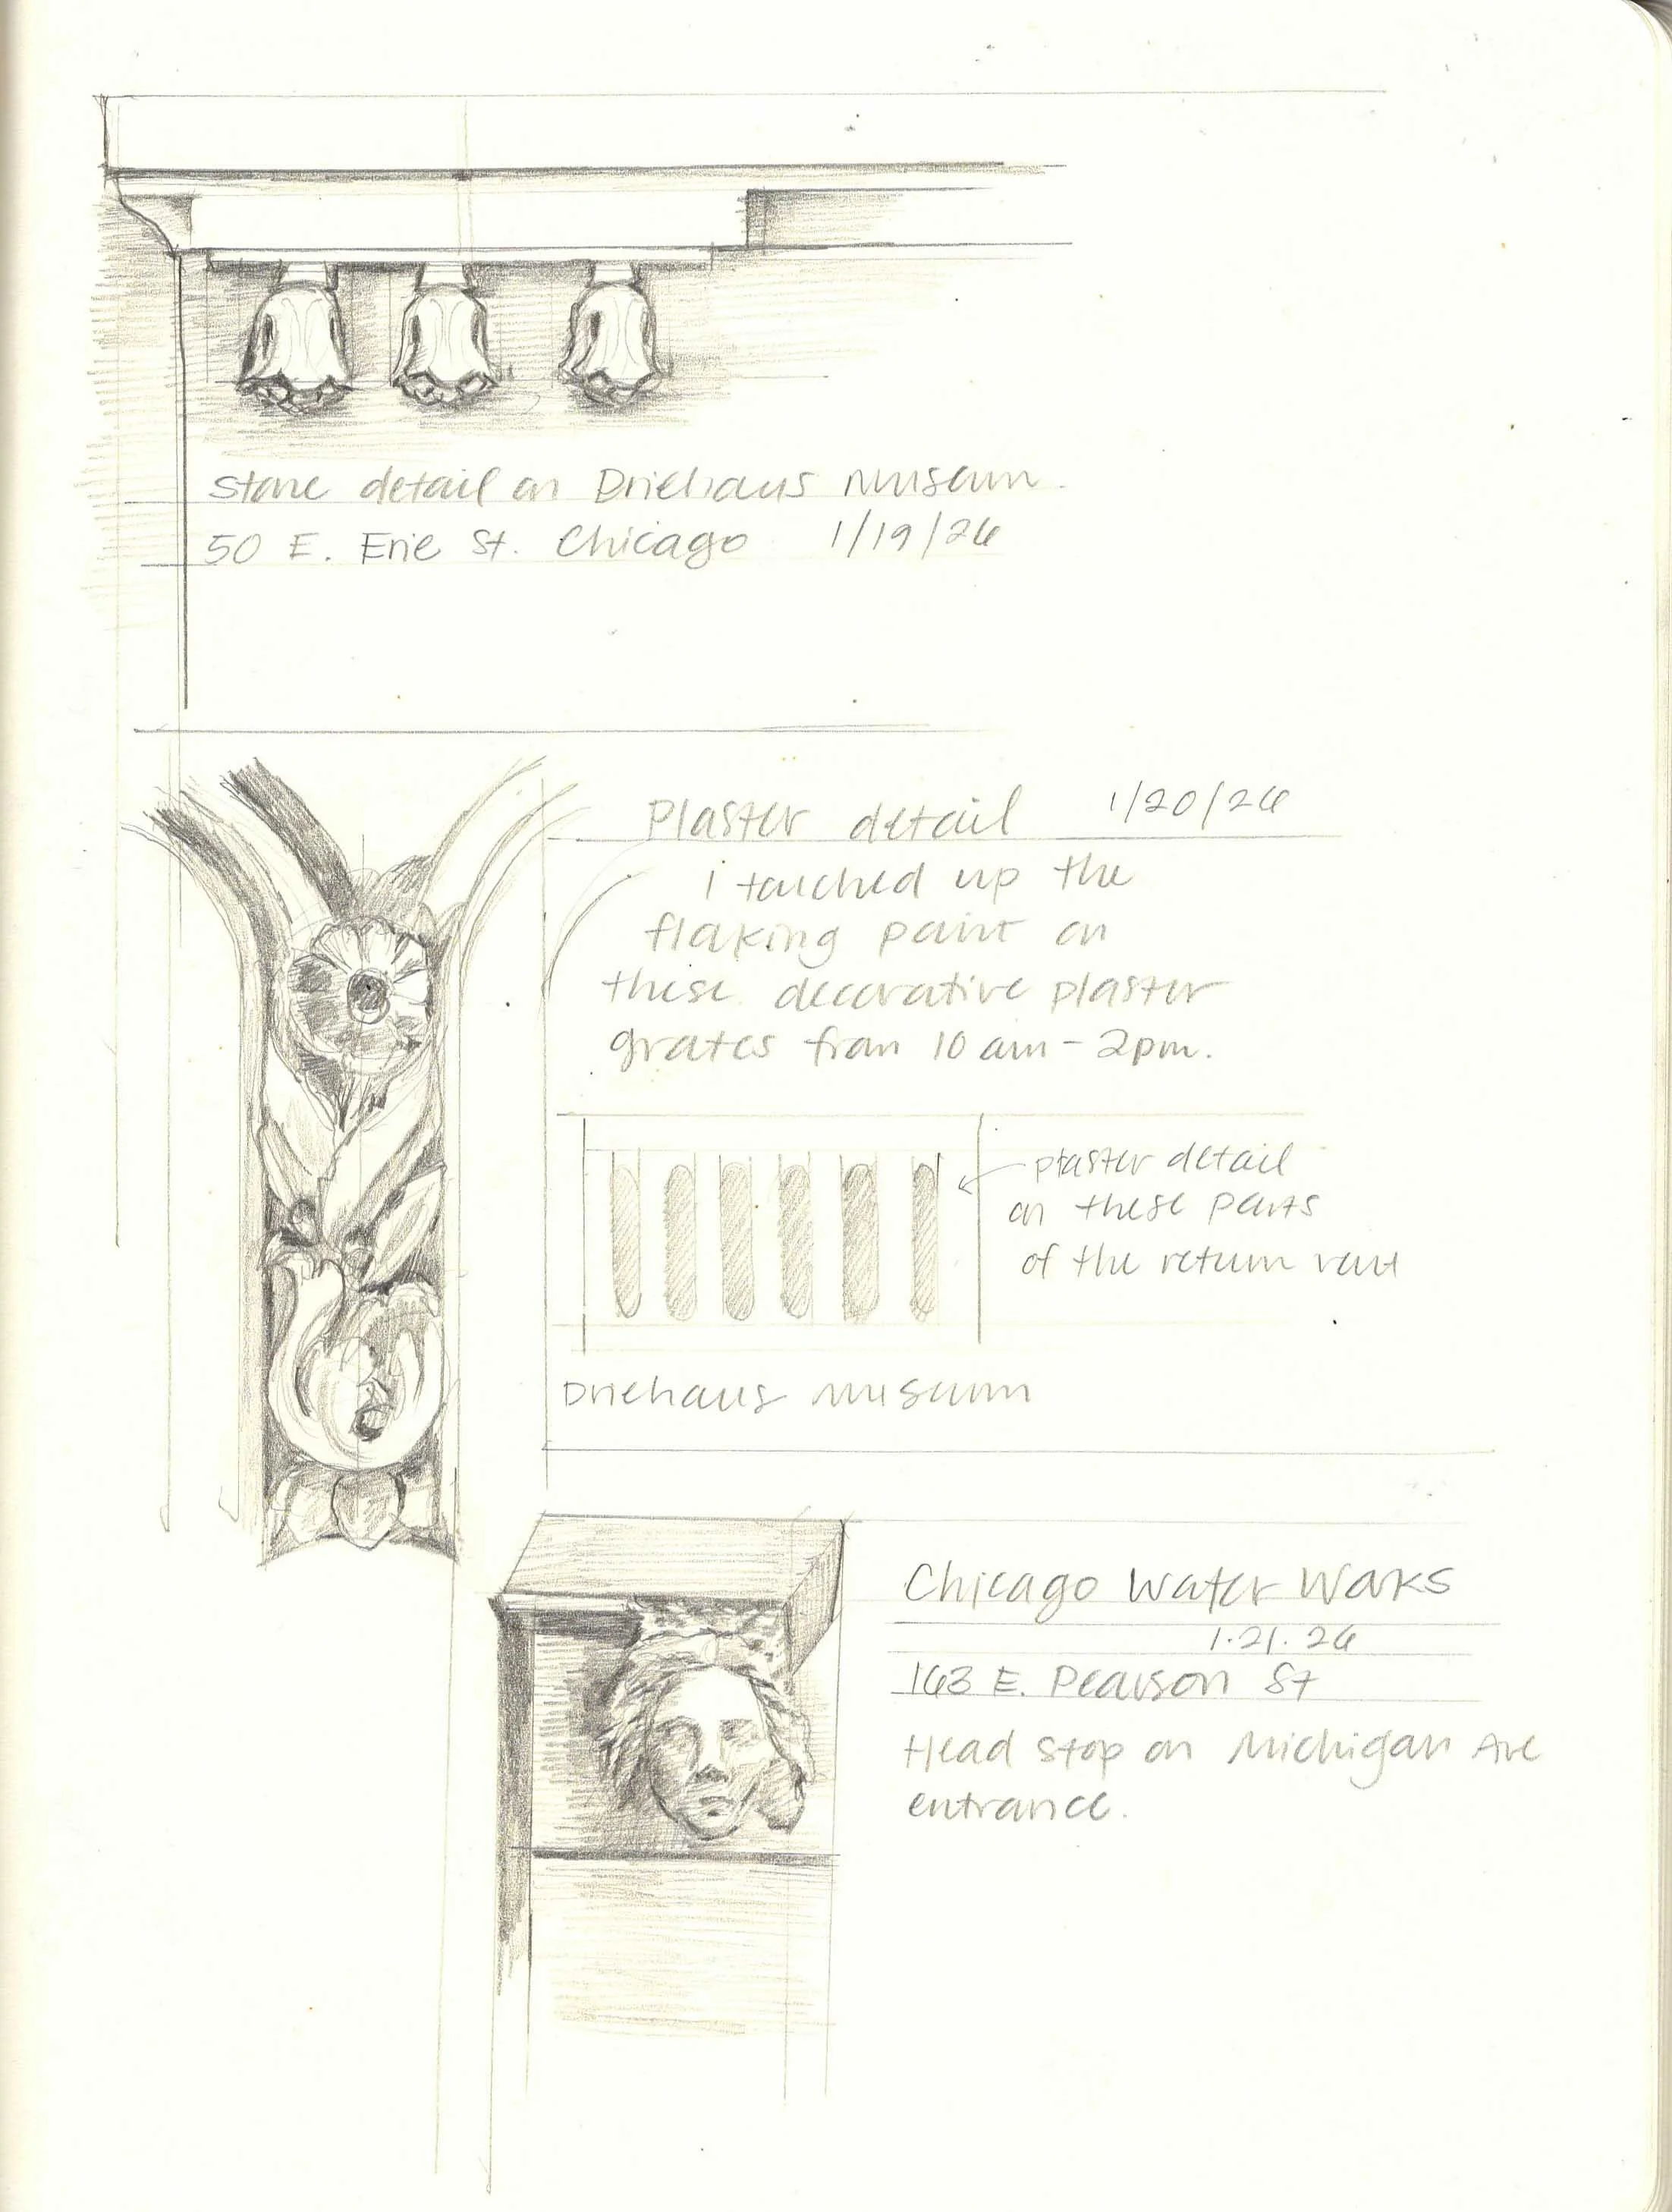 Stone detail on Driehaus Museum.
50 E. Erie St. Chicago 1/19/26
Plaster detail 1/20/26
I touched up the
flaking paint on
these decorative plaster
grates from 10 am - 2pm.
plaster detail
on these parts
of the return vent
Driehaus Museum
Chicago Water Works
1.21.26
163 E. Pearson St
Head stop on Michigan Ave
entrance.